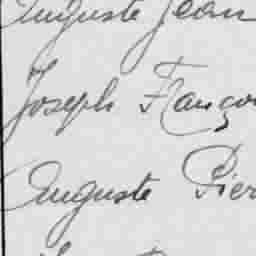 Auguste Jean
Joseph Françoi
Auguste Pier